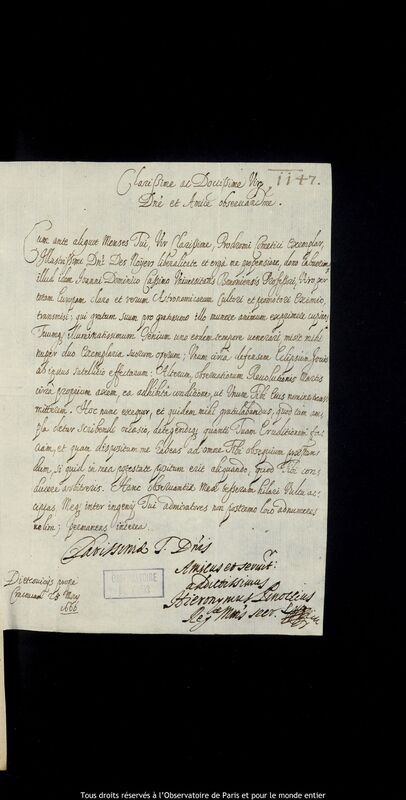 1147.
Clarissime ac Doctissime Vir,
Dne et Amice observandme.
Cum ante aliquot Menses Tui, Vir Clarissime, Prodromi Cometici Exemplar,
Illustrissimi Dni Des Noyers liberalitate et erga me propensione, dono
illud idem Joanni Dominico Cassino Universitatis Bononiensis Professori, Viro per
totam Europam claro et rerum Astronomicarum Cultori et promotori Eximio,
transmisi; qui gratum suum pro gratissimo illo munere animum exprimere cupiens,
Tuumq illuminatissimum Genium uno eodem tempore venerari, misit mihi
nuper duo Exemplaria suorum operum; Unum circa defensam Eclipsium Jovis
ab ipsius satellitio effectarum: Alterum, observationum Revolutionis Martis
circa proprium axem, ea adhibita conditione, ut Unum Tibi Eius nomine
mitterem. Hoc nunc exequor, et quidem mihi gratulabundus, quod tam
pla detur scribendi occasio, detegendi quanti Tuam Eruditionem
ciam, et quam dispositum me habeas ad omne Tibi obsequium
dum, si quid in mea potestate positum erit aliquando, quod Tibi con
ducere arbitreris. Hanc observantiæ Meæ tesseram hilari Vultu ac
cipias, Meq inter ingenij Tui admiratores non postremo loco adnumeres
velim; permanens interea.
Clarissimæ T. Dnis
Amicus et servit.
addictissimus
Hieronymus Pinoccius
Reg Mtis secr.
prope
Cracoviam 28 May
1666
OBSERVATOIRE
DE PARIS
Tous droits réservés à l'Observatoire de Paris et pour le monde entier